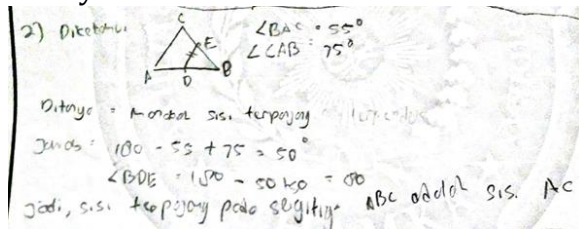 2) Diketahui
C
∠BAC = 55°
∠CAB = 75°
E
A D B
Ditanya = sisi terpanjang
Jawab = 180 - 55 + 75 = 50°
∠BDE = 180 - 50
jadi, sisi terpanjang pada segitiga ABC adalah sisi AC